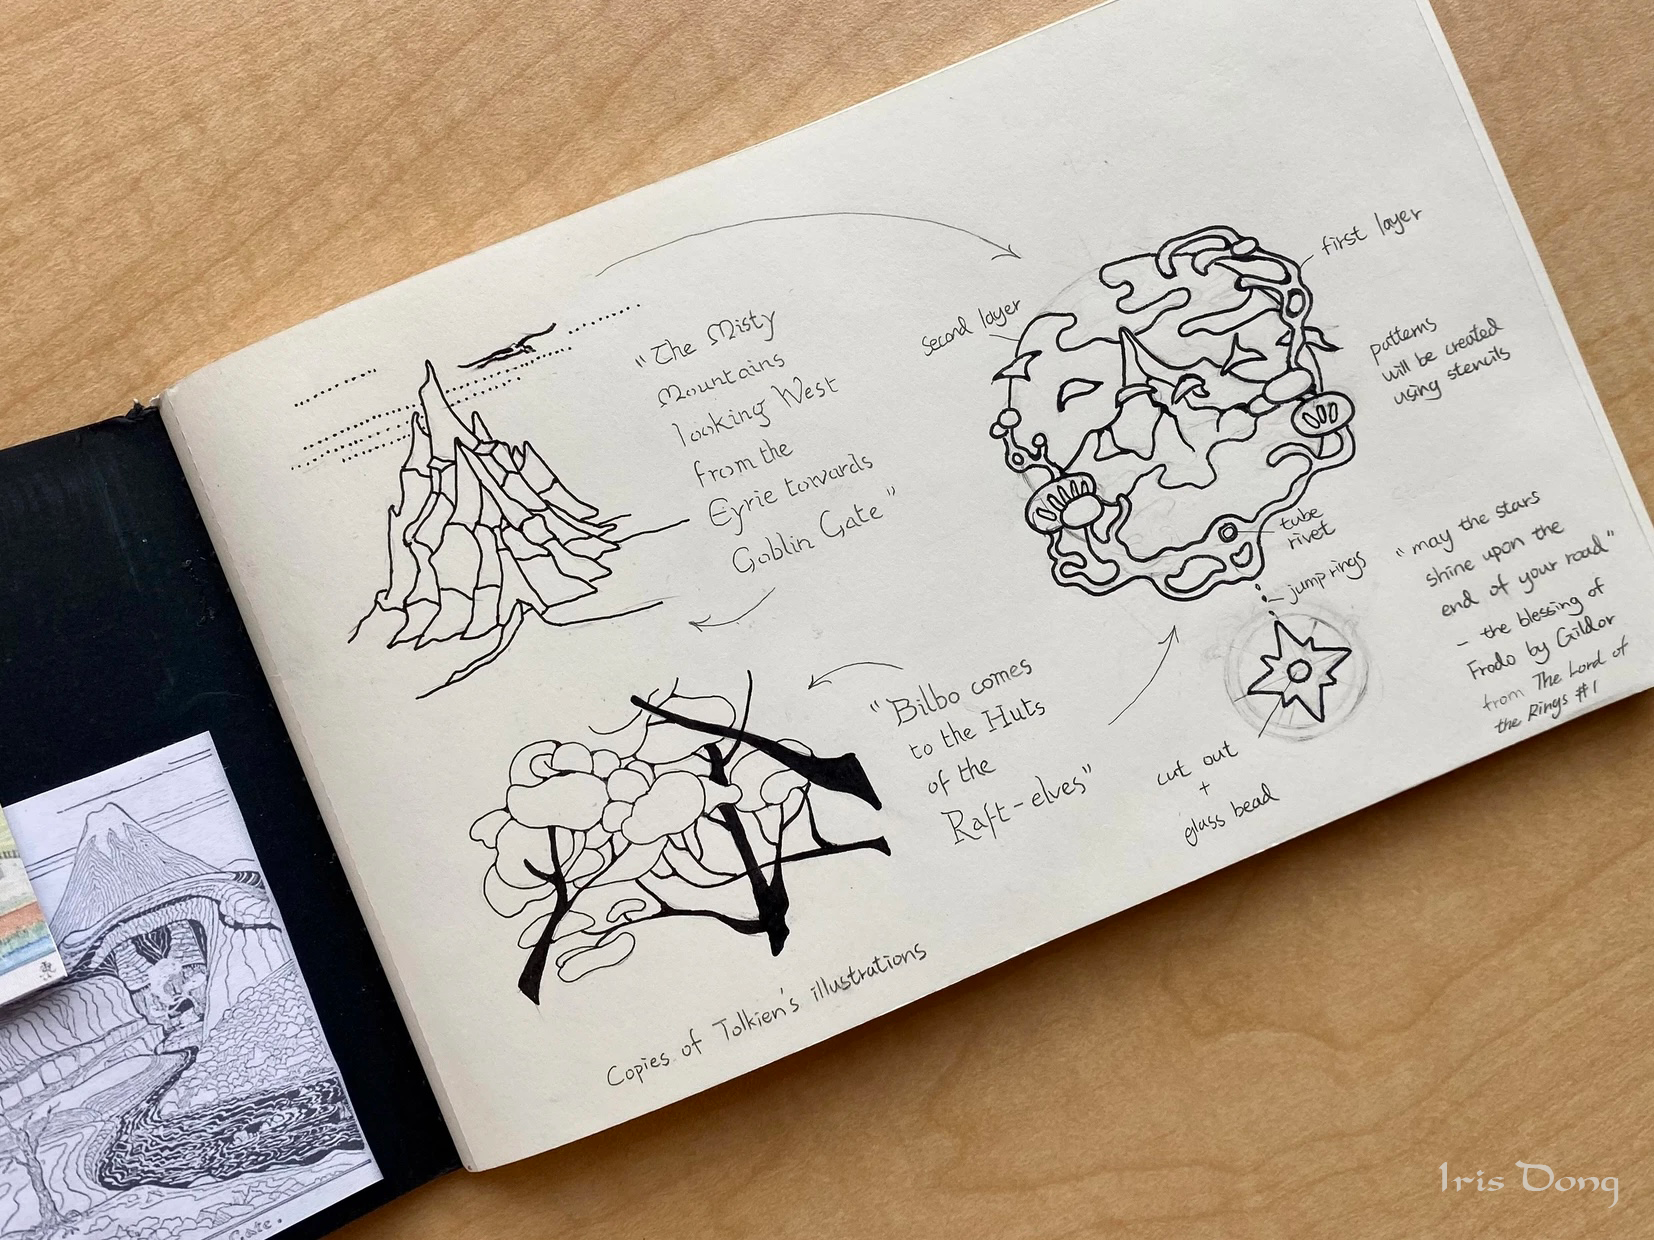 "The Misty
Mountains
looking West
from the
Eyrie towards
Goblin Gate"
"Bilbo comes
to the Huts
of the
Raft-elves"
Copies of Tolkien's illustrations
second layer
first layer
patterns
will be created
using stencils
tube
rivet
jump rings
"may the stars
shine upon the
end of your road"
- the blessing of
Frodo by Gildor
from The Lord of
the Rings #1
cut out
+
glass bead
Gate.
Iris Dong